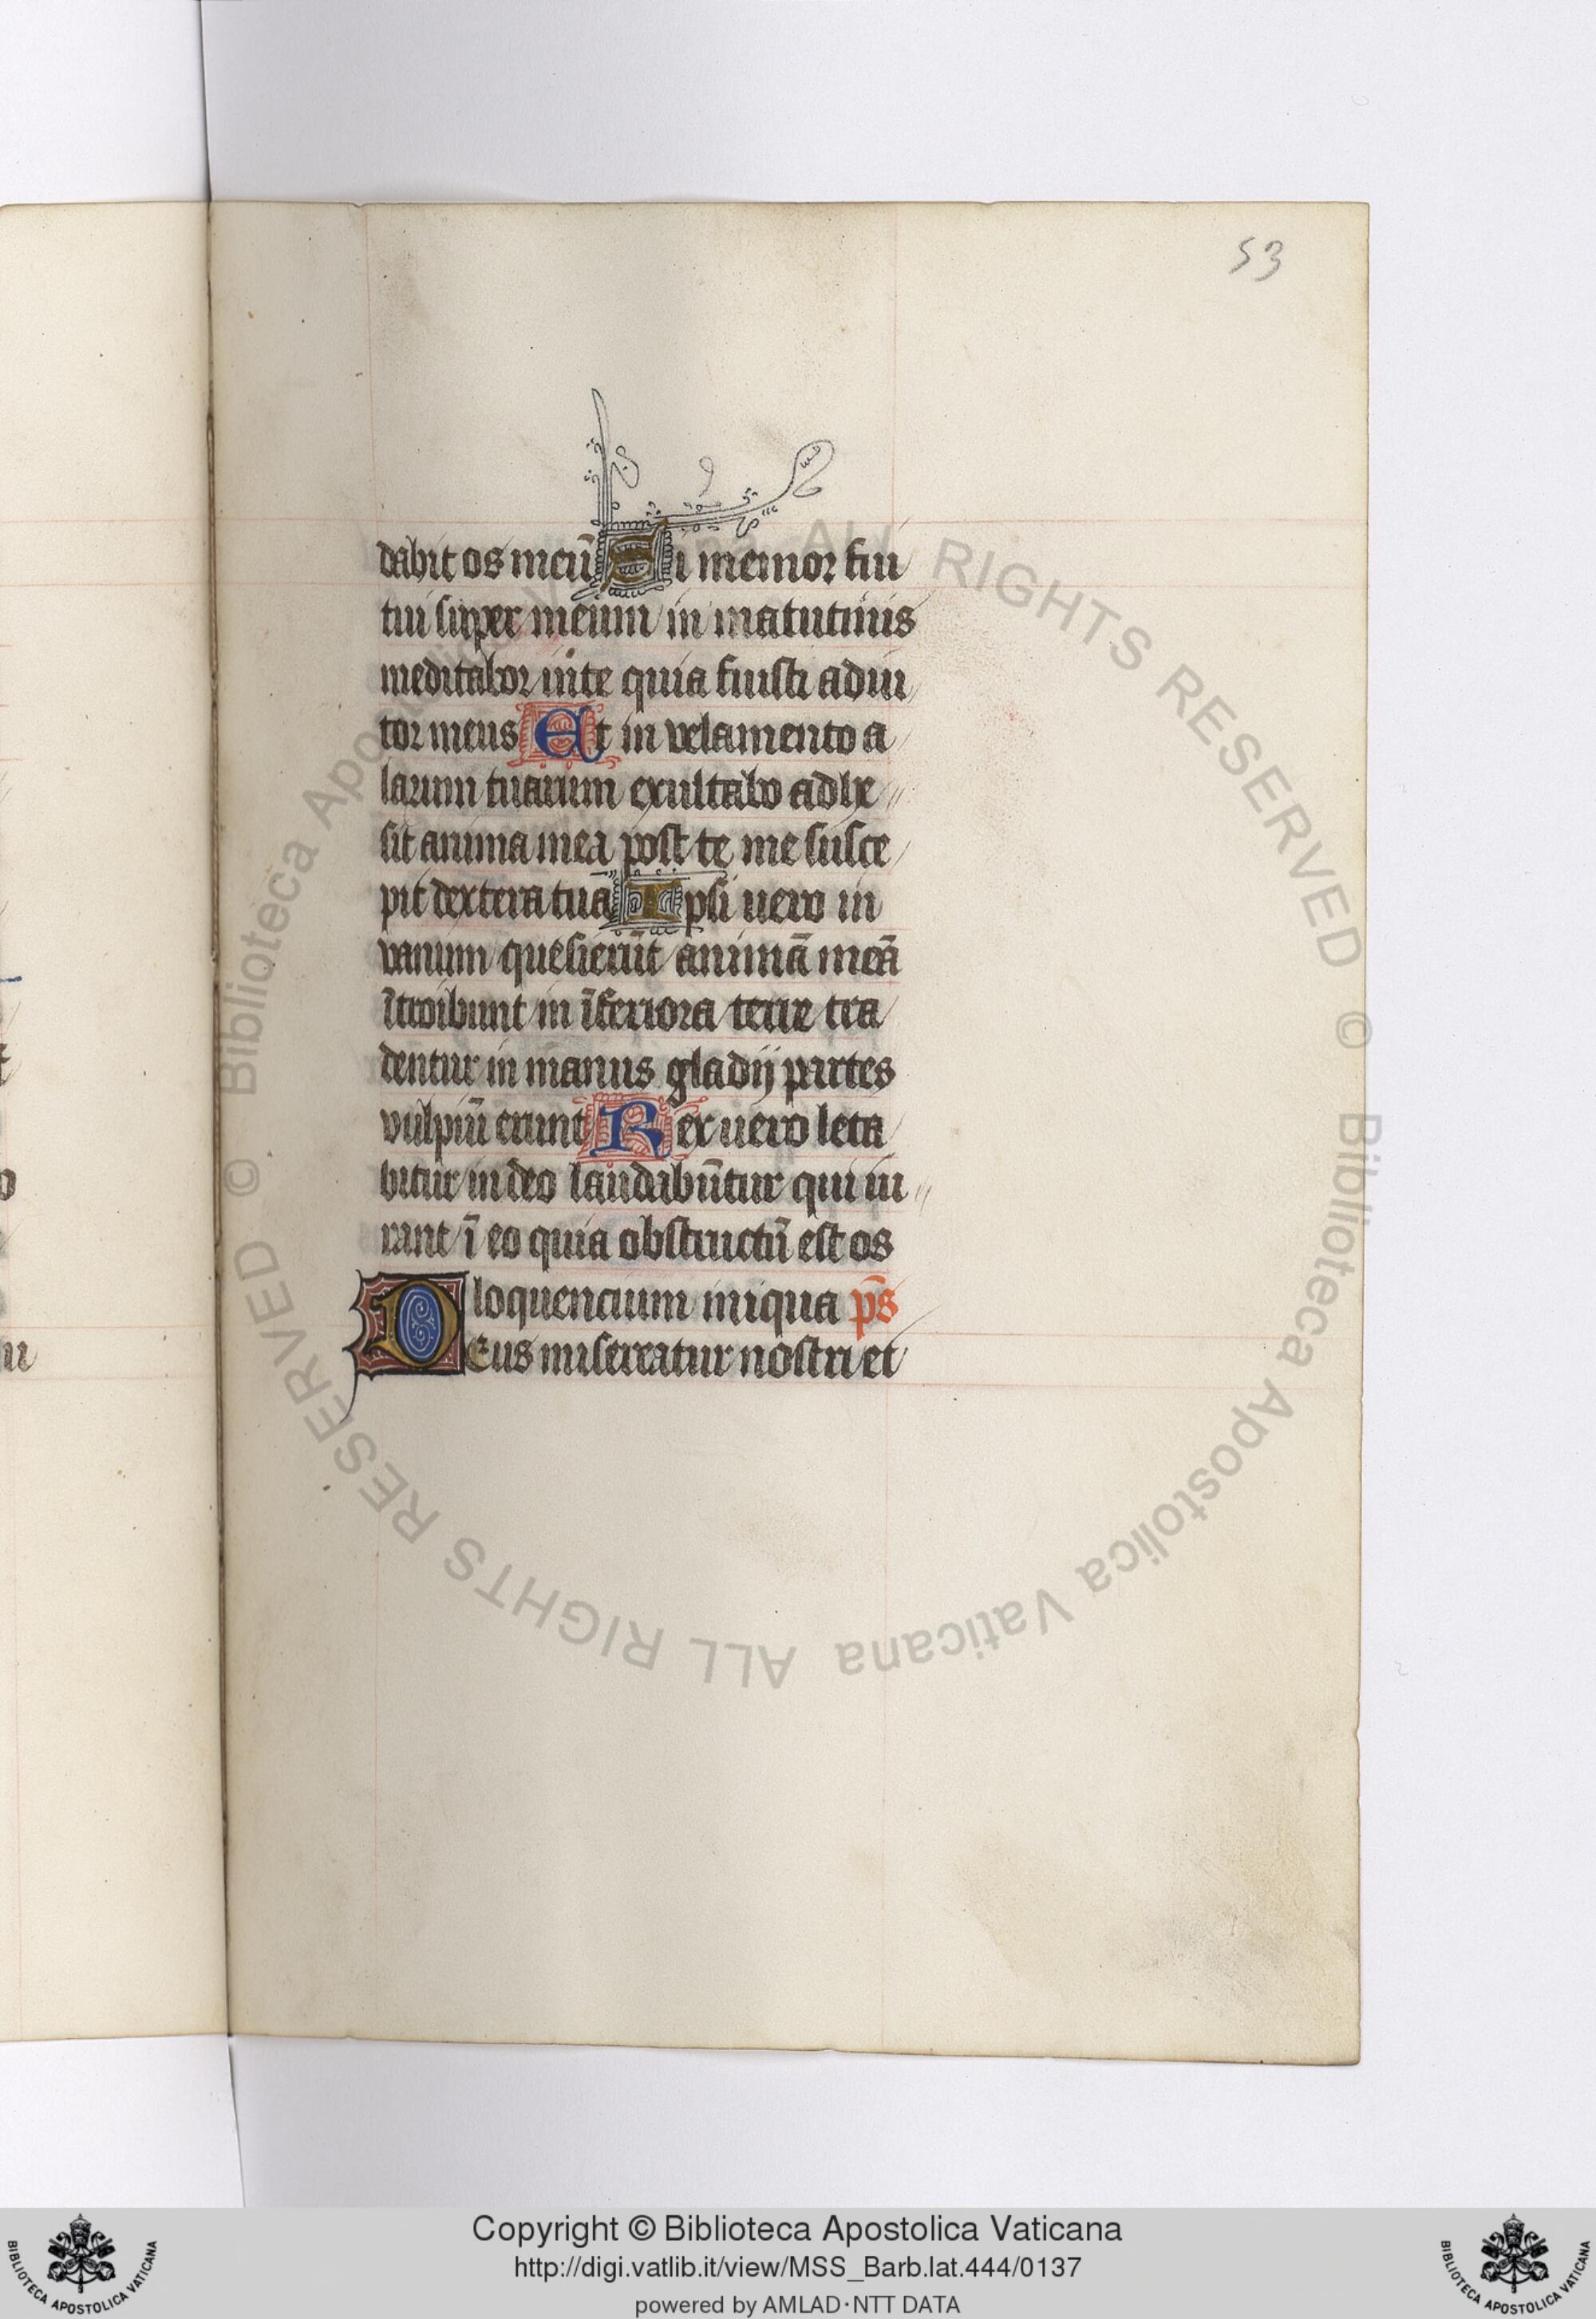 53
dabit os meū Si memor fui
tui super meum in matutinis
meditabor in te quia fuisti adiu
tor meus Et in velamento a
larum tuarum exultabo adhe
sit anima mea post te me susce
pit dextera tua Ipsi uero in
vanum quesierūt animā meā
ītroibunt in īferiora terre tra
dentur in manus gladij partes
vulpiū erunt Rex uero leta
bitur in deo laudabūtur qui iu
rant ī eo quia obstructū est os
loquencium iniqua p̄s
Deus miserratur nostri et
u
© Biblioteca Apostolica Vaticana ALL RIGHTS RESERVED
© Biblioteca Apostolica Vaticana ALL RIGHTS RESERVED
Copyright © Biblioteca Apostolica Vaticana
http://digi.vatlib.it/view/MSS_Barb.lat.444/0137
powered by AMLAD·NTT DATA
BIBLIOTECA APOSTOLICA VATICANA
BIBLIOTECA APOSTOLICA VATICANA